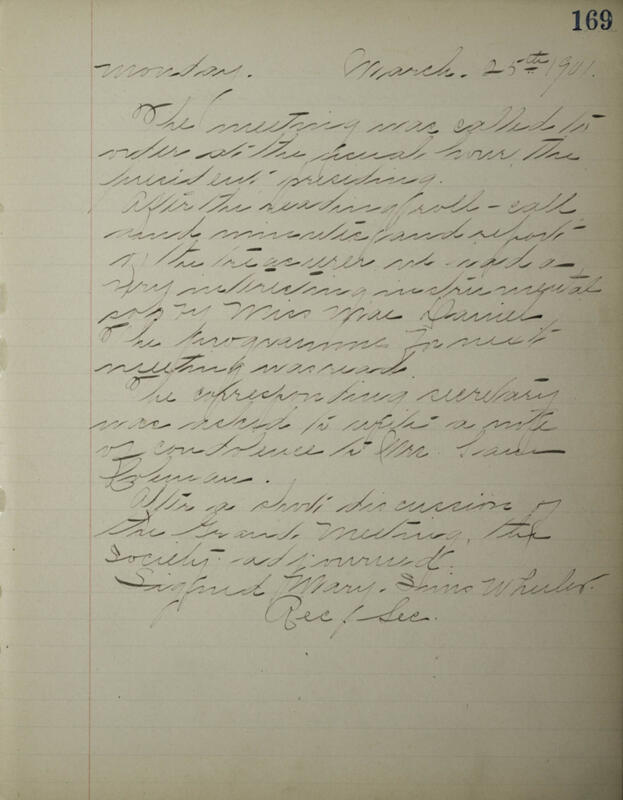 169
Monday. March. 25th 1901.
The meeting was called to
order at the usual hour, the
president preceding.
After the reading, roll-call
and minutes, and report
of the treasurer we had a
very interesting instrumental
solo by Miss Mae
The Programme for next
meeting was read.
The corresponding secretary
was asked to write a note
of condolence to Mrs.

After a short discussion of
the Grand Meeting, the
society adjourned.
Signed Mary. Wheeler.
Rec / Sec.